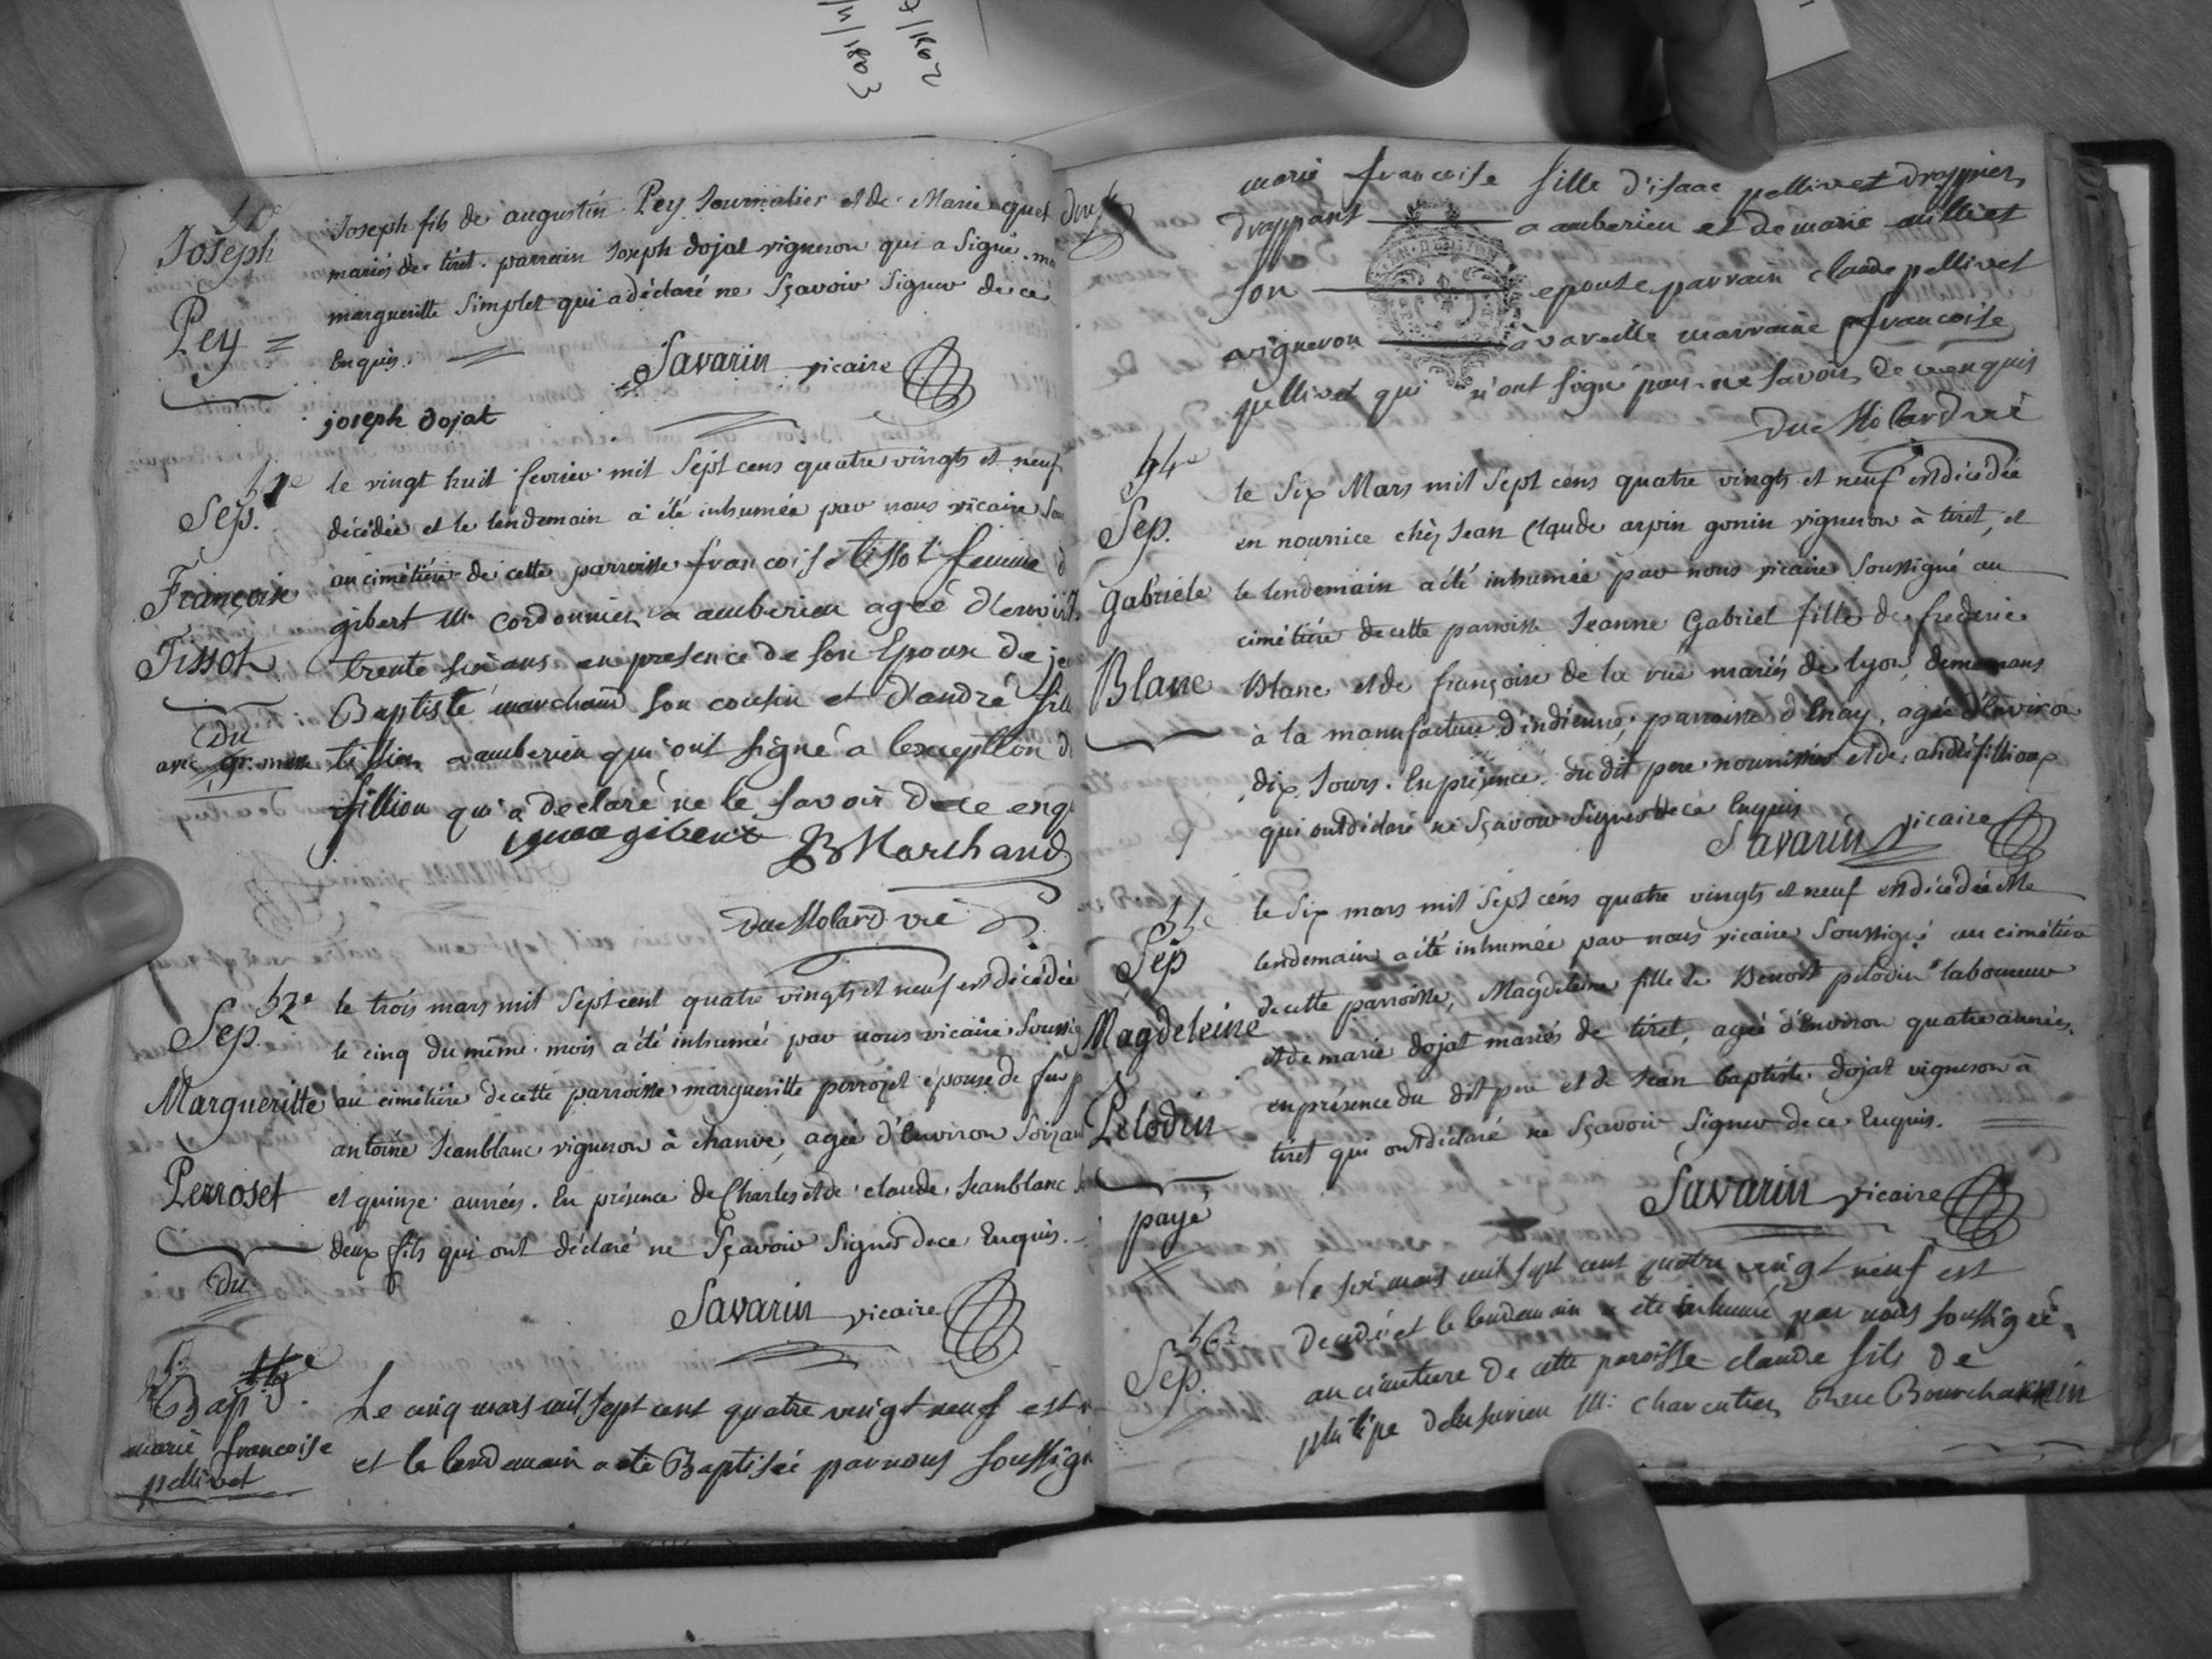 Joseph
Pey
Joseph fils de augustin Pey Journalier et de Marie
mariés de tiret. parrain Joseph dojat vigneron qui a Signé
margueritte Simplet qui a déclaré ne Sçavoir Signer de ce
Enquis.
Savarin vicaire
joseph dojat
Sep.
Françoise
Tissot
Du
avec gr. messe
le vingt huit fevrier mil Sept cens quatre vingts et neuf
décédée et le lendemain a été inhumée par nous vicaire
au cimétière de cette parroisse francoise tissot femme
gibert M. cordonnier a amberieu agée d'environ
trente six ans en presence de son Epoux de
Baptiste marchand son cousin et d'andré
tissier a amberieu qui ont signé a l'exception
fillion qui a declaré ne le savoir de ce enq
JB Marchand
Du Molard vic
52e
Sep.
Margueritte
Perroset
Du
le trois mars mil Sept cent quatre vingts et neuf est décédée
le cinq du même mois a été inhumée par nous vicaire Soussig
au cimétière de cette parroisse margueritte perrozet épouse de feu
antoine Jeanblanc vigneron à chanve, agée d'Environ Soixan
et quinze années. En présence de Charles et de claude Jeanblanc
deux fils qui ont déclaré ne Sçavoir Signer de ce Enquis.
Savarin vicaire
Bap
marie francoise
pellivet
Le cinq mars mil sept cent quatre vingt neuf est
et le lendemain a été Baptisée par nous soussigné
marie francoise fille d'isaac pellivet drappier
drappant a amberieu et de marie milliet
son epouse parrain claude pellivet
vigneron à vareille marraine francoise
pellivet qui n'ont signé pour ne savoir de ce enquis
Du Molard vic
54e
Sep.
Gabriele
Blanc
le Six Mars mil Sept cens quatre vingts et neuf est décédée
en nourrice chéz Jean Claude arpin gonin vigneron à tiret, et
le lendemain a été inhumée par nous vicaire Soussigné au
cimétière de cette parroisse Jeanne Gabriel fille de frederic
Blanc et de françoise de la rue mariés de lyon, demeurans
à la manufacture d'indienne, parroisse d'Enay, agée d'Environ
dix Jours. En présence du dit pere nourrissier et de andré fillioux
qui ont déclaré ne Sçavoir Signer de ce Enquis
Savarin vicaire
55e
Sep
Magdeleine
Pelodin
payé
le Six mars mil Sept cens quatre vingts et neuf est décédée et le
lendemain a été inhumée par nous vicaire Soussigné au cimétière
de cette parroisse, Magdeleine fille de Benoit pelodin laboureur
et de marie dojat mariés de tiret, agée d'Environ quatre années.
en présence du dit pere et de Jean baptiste dojat vigneron à
tiret qui ont déclaré ne Sçavoir Signer de ce Enquis.
Savarin vicaire
56e
Sep.
Le six mars mil sept cent quatre vingt neuf est
decedé et le lendemain a été inhumé par nous soussigné
au cimetiere de cette paroisse claude fils de
philipe M. charcutier rue Bourchanin